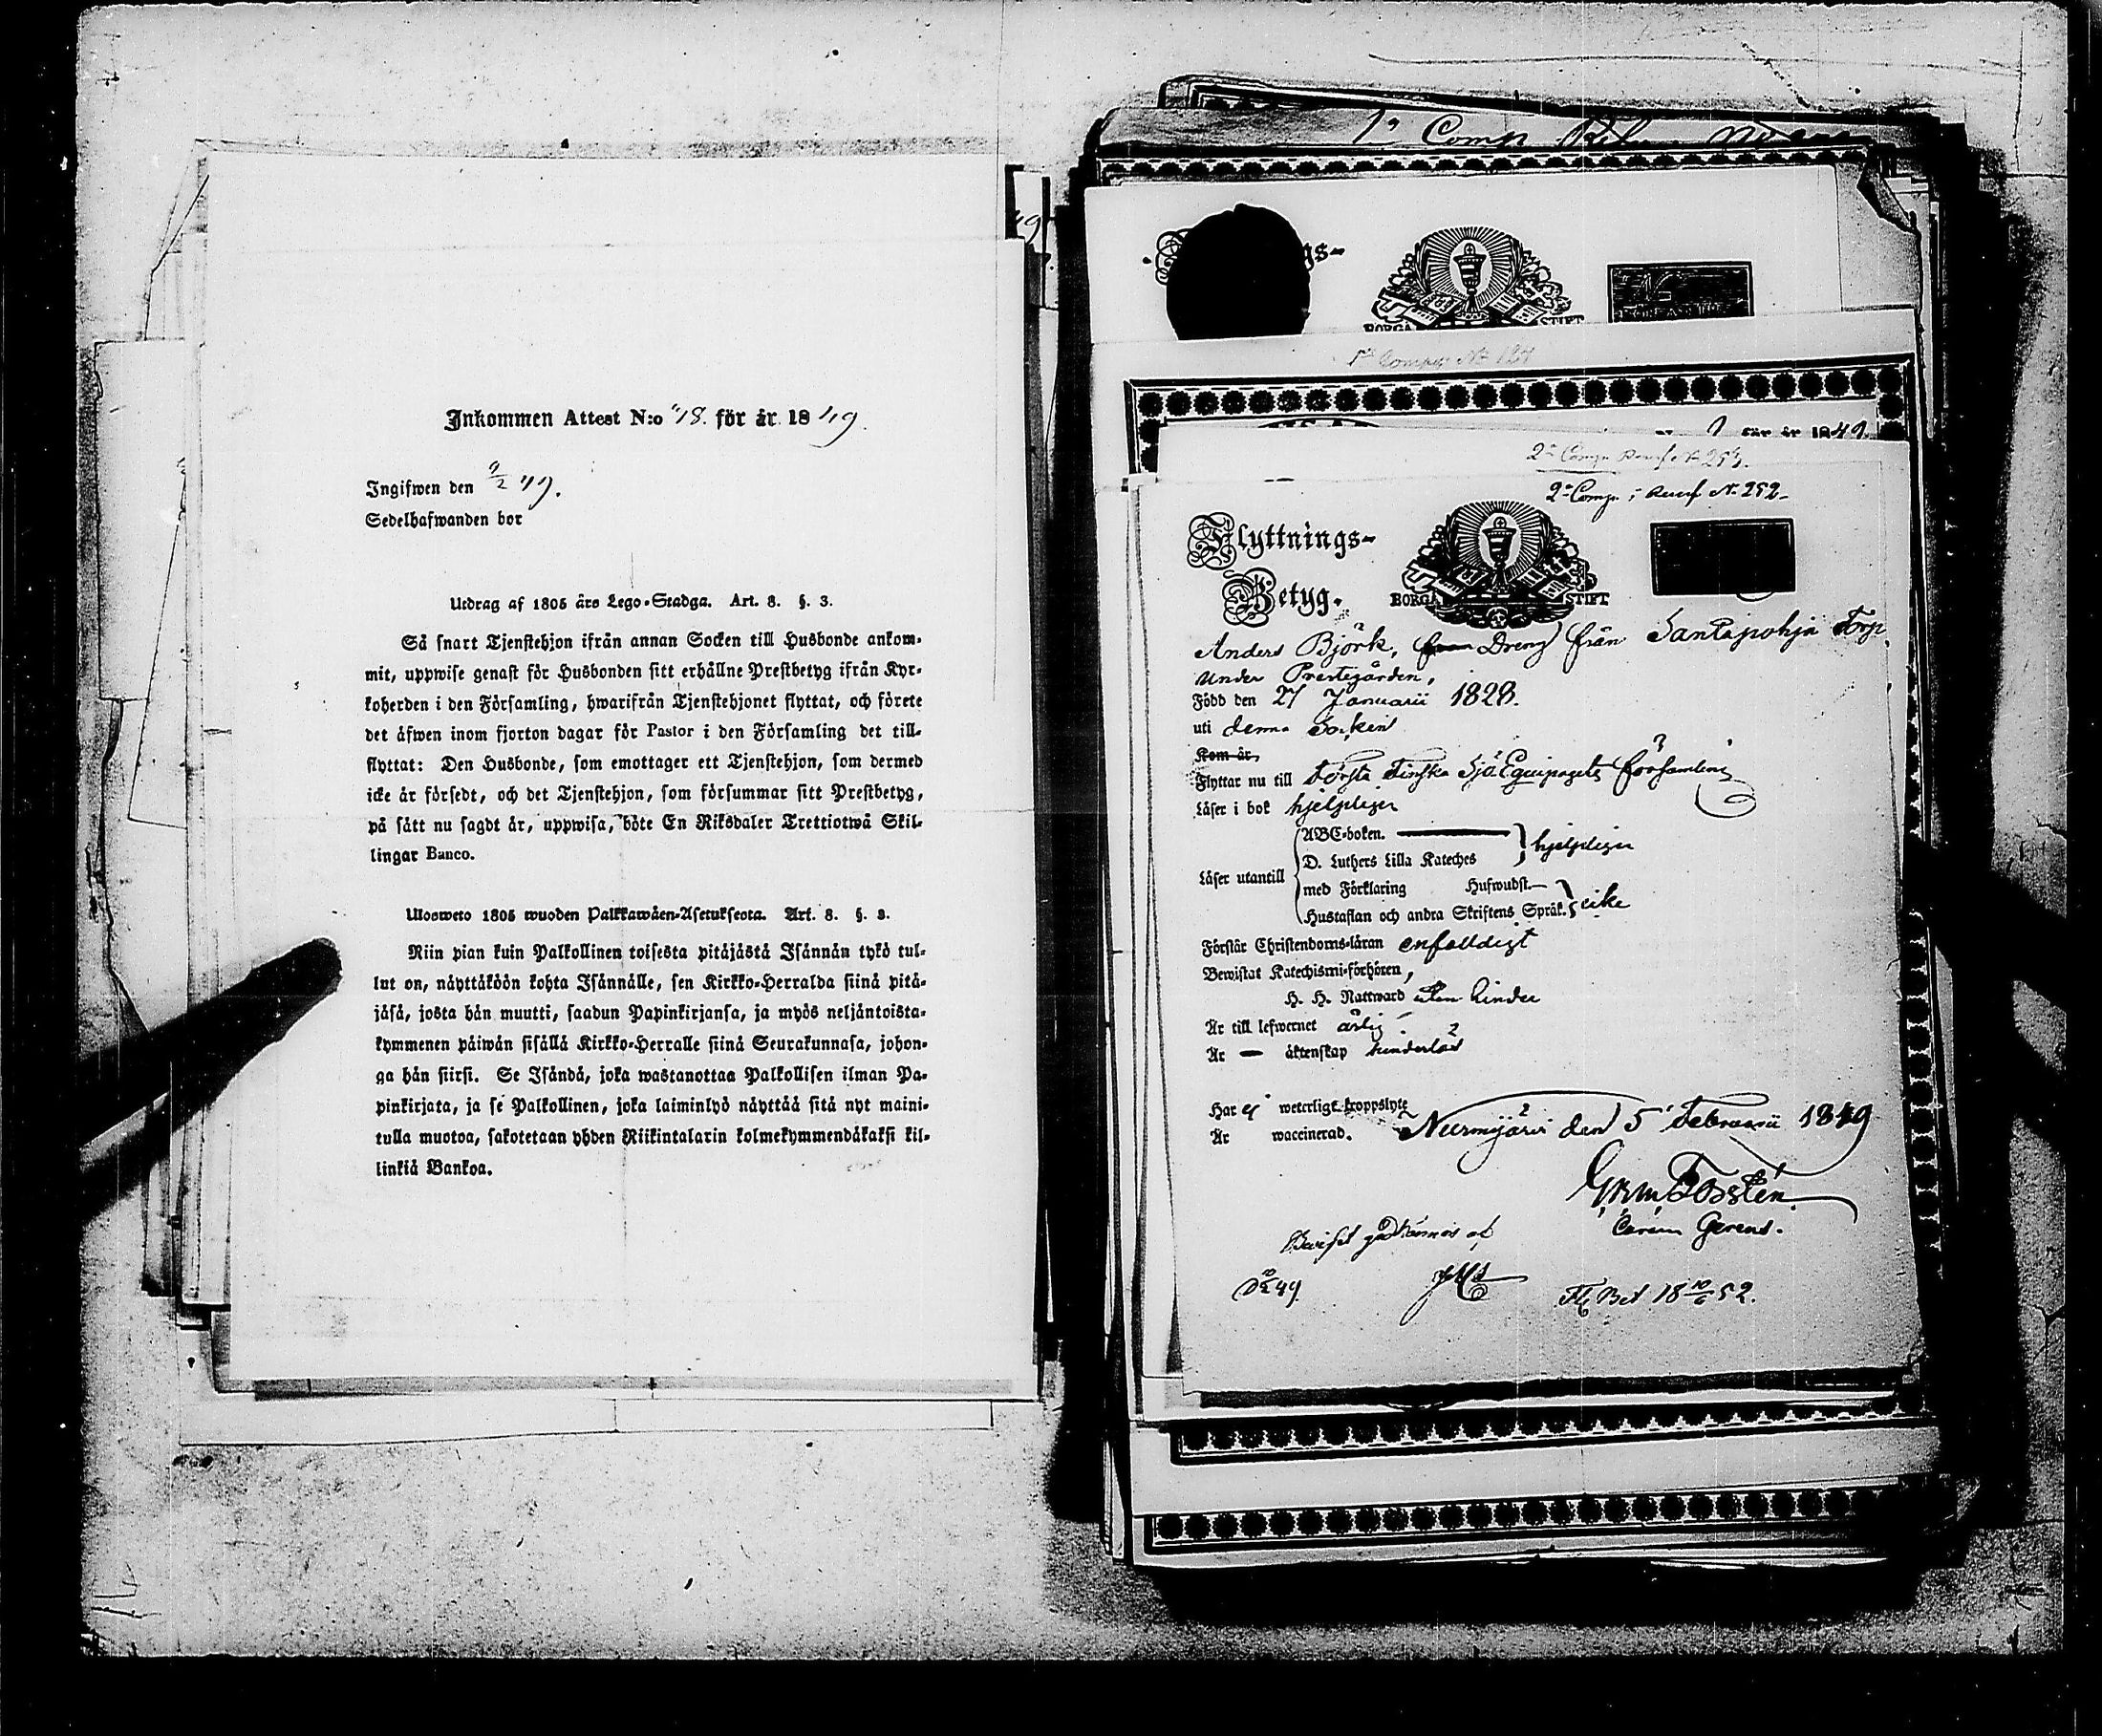 Inkommen Attest N:o 18. för år 1849.
Ingifwen den 9/2 49.
Sedelhafwanden bor
Utdrag af 1805 års Lego-Stadga. Art. 8. §. 3.
Så snart Tjenstehjon ifrån annan Socken till Husbonde ankom-
mit, uppwise genast för Husbonden sitt erhållne Prestbetyg ifrån Kyr-
koherden i den Församling, hwarifrån Tjenstehjonet flyttat, och förete
det äfwen inom fjorton dagar för Pastor i den Församling det till-
flyttat: Den Husbonde, som emottager ett Tjenstehjon, som dermed
icke är försedt, och det Tjenstehjon, som försummar sitt Prestbetyg,
på sätt nu sagdt är, uppwisa, böte En Riksdaler Trettiotwå Skil-
lingar Banco.
Ulosweto 1805 wuoden Palkkawäen-Asetuksesta. Art. 8. §. 3.
Niin pian kuin Palkollinen toisesta pitäjästä Isännän tykö tul-
lut on, näyttäköön kohta Isännälle, sen Kirkko-Herralda siinä pitä-
jäsä, josta hän muutti, saadun Papinkirjansa, ja myös neljäntoista-
kymmenen päiwän sisällä Kirkko-Herralle siinä Seurakunnasa, johon-
ga hän siirsi. Se Isändä, joka wastanottaa Palkollisen ilman Pa-
pinkirjata, ja se Palkollinen, joka laiminlyö näyttää sitä nyt maini-
tulla muotoa, sakotetaan yhden Riikintalarin kolmekymmendäkaksi kil-
linkiä Bankoa.
1a Comp
BORGÅ STIFT
1 för år 1849.
2a Comp. N 253.
2a Comp. i N. 252.
Flyttnings-
Betyg.
BORGÅ STIFT
Anders Björk, Dreng från Santapohja Torp
under Prestegården,
Född den 27 Januarii 1828.
uti denna Socken
Kom år,
Flyttar nu till Första Finska SjöEquipagets församling
Läser i bok hjelpligen
Läser utantill
ABC-boken.
D. Luthers Lilla Kateches
hjelpligen
med Förklaring Hufwudst.
Hustaflan och andra Skriftens Språk. icke
Förstår Christendoms-läran enfalldigt
Bewistat Katechismi-förhören,
H. H. Nattward utan hinder
Är till lefwernet ärlig.
Är — äktenskap hinderlös
Har ej weterligt kroppslyte
Är waccinerad.
Nurmijärvi den 5 Februarii 1849
Forstén
Curam Gerens.
Bevist godkännes af
D 10/2 49.
Fl. Bet 18 10/6 52.